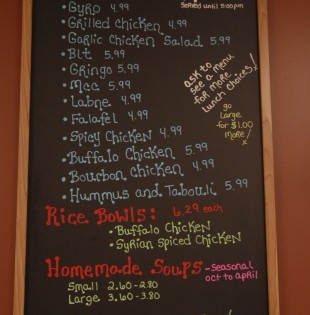 Served until 5:00pm
• Gyro 4.99
• Grilled Chicken 4.99
• Garlic Chicken Salad 5.99
• Blt 5.99
• Gringo 5.99
• Mcc 5.99
• Labne 4.99
• Falafel 4.99
• Spicy Chicken 4.99
• Buffalo Chicken 5.99
• Bourbon Chicken 4.99
• Hummus and Tabouli 5.99
ask to
see a menu
for more
lunch choices!
go
Large
for $1.00
more!
Rice Bowls: 6.29 each
• Buffalo Chicken
• Syrian Spiced Chicken
Homemade Soups - seasonal
oct to april
Small 2.60-2.80
Large 3.60-3.80